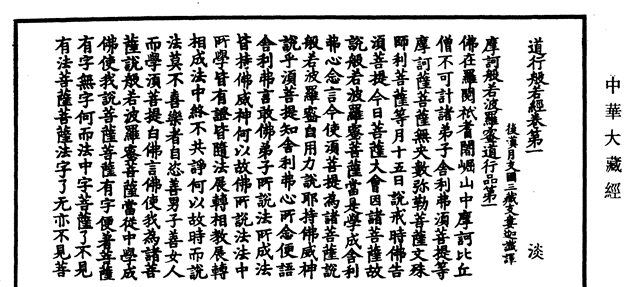 中華大藏經
道行般若經卷第一　淡
後漢月支國三藏支婁迦讖譯
摩訶般若波羅蜜道行品第一
佛在羅閱祇耆闍崛山中摩訶比丘
僧不可計諸弟子舍利弗須菩提等
摩訶薩菩薩無央數彌勒菩薩文殊
師利菩薩等月十五日說戒時佛告
須菩提今日菩薩大會因諸菩薩故
說般若波羅蜜菩薩當是學成舍利
弗心念言今使須菩提為諸菩薩說
般若波羅蜜自用力說耶持佛威神
說乎須菩提知舍利弗心所念便語
舍利弗言敢佛弟子所說法所成法
皆持佛威神何以故佛所說法法中
所學皆有證皆隨法展轉相教展轉
相成法中終不共諍何以故時而說
法莫不喜樂者自恣善男子善女人
而學須菩提白佛言佛使我為諸菩
薩說般若波羅蜜菩薩當從中學成
佛使我說菩薩菩薩有字便著菩薩
有字無字何而法中字菩薩了不見
有法菩薩菩薩法字了無亦不見菩